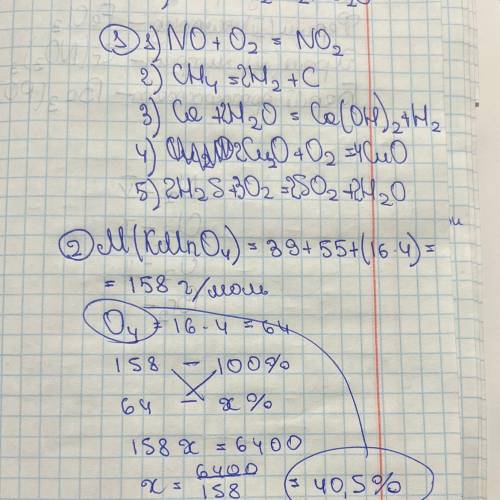 ① 1) NO + O₂ = NO₂
2) CH₄ = 2H₂ + C
3) Ca + 2H₂O = Ca(OH)₂ + H₂
4) 2Cu₂O + O₂ = 4CuO
5) 2H₂S + 3O₂ = 2SO₂ + 2H₂O
② M(KMnO₄) = 39 + 55 + (16 · 4) =
= 158 г/моль
O₄ = 16 · 4 = 64
158 — 100%
64 — x%
158 x = 6400
x = 6400/158 = 40,5%